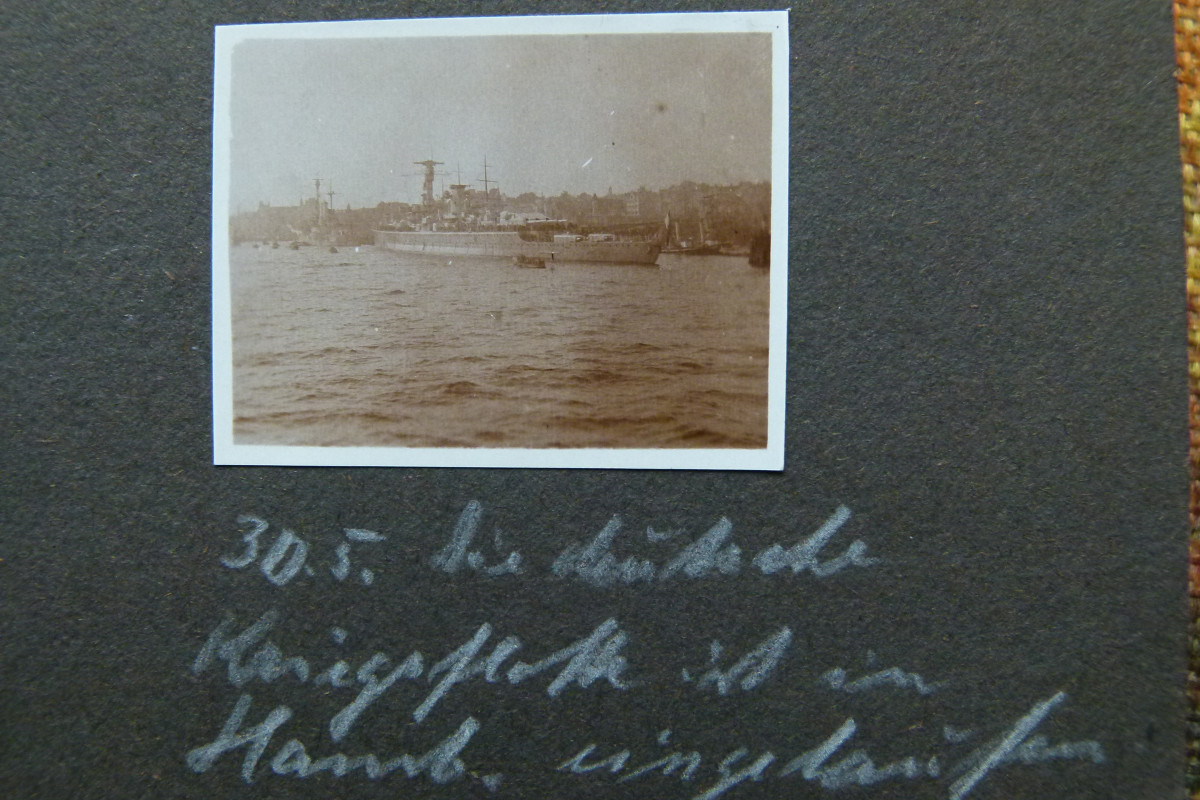 30.5. Die deutsche
Kriegsflotte ist in
Hamb. eingelaufen